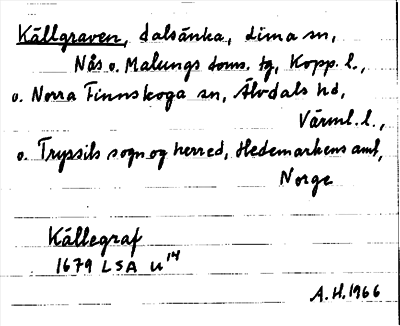 Källgraven, dalsänka, Lima sn,
Nås o. Malungs doms. tg, Kopp. l.,
o. Norra Finnskoga sn, Älvdals hd,
Värml. l.,
o. Tryssils sogn og herred, Hedemarkens amt,
Norge
Källegraf
1679 LSA U 14
A.H. 1966